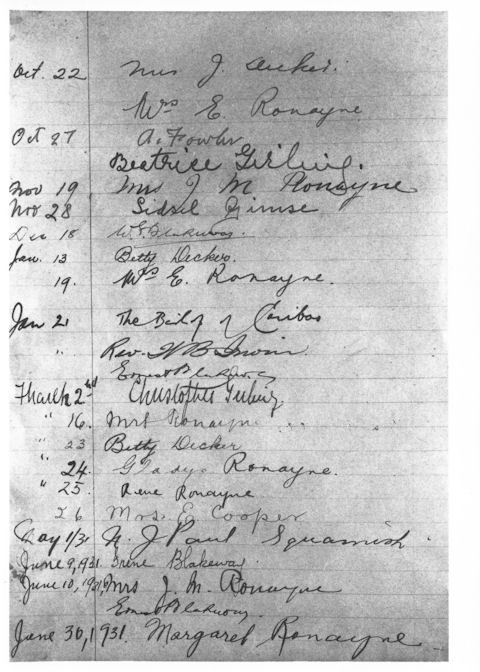 Oct. 22 Mrs J. Decker.
Mrs E. Ronayne
Oct 27 A. Fowler
Beatrice Girling.
Nov 19 Mrs J M Ronayne
Nov 28 Sidsel Gimse
Dec 18 W.S. Blakeway.
Jan. 13 Betty Decker.
19. Mrs E. Ronayne.
Jan 21 The Bishop of Cariboo
" Rev. H B Irwin
Ernest Blakeway
March 2nd Christopher Girling.
" 16. Mrs Ronayne
" 23 Betty Decker
" 24. Gladys Ronayne.
" 25. Rene Ronayne
26 Mrs. E. Cooper
May 1/31 N. J Paul Squamish
June 9, 1931. Irene Blakeway.
June 10, 1931 Mrs J. M. Ronayne
Ernest Blakeway.
June 30, 1931. Margaret Ronayne